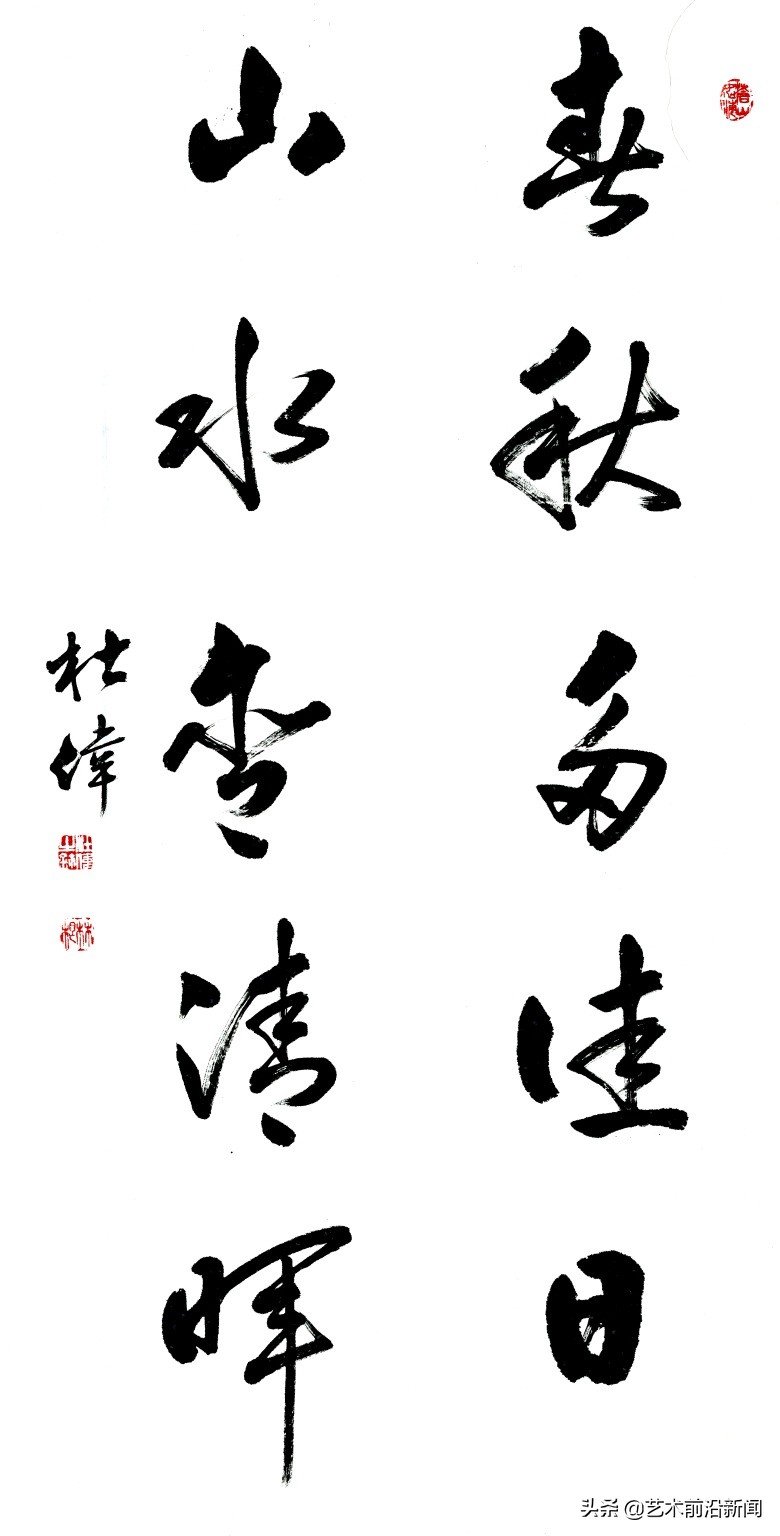 春秋多佳日
山水香清暉
杜偉
头条 @艺术前沿新闻